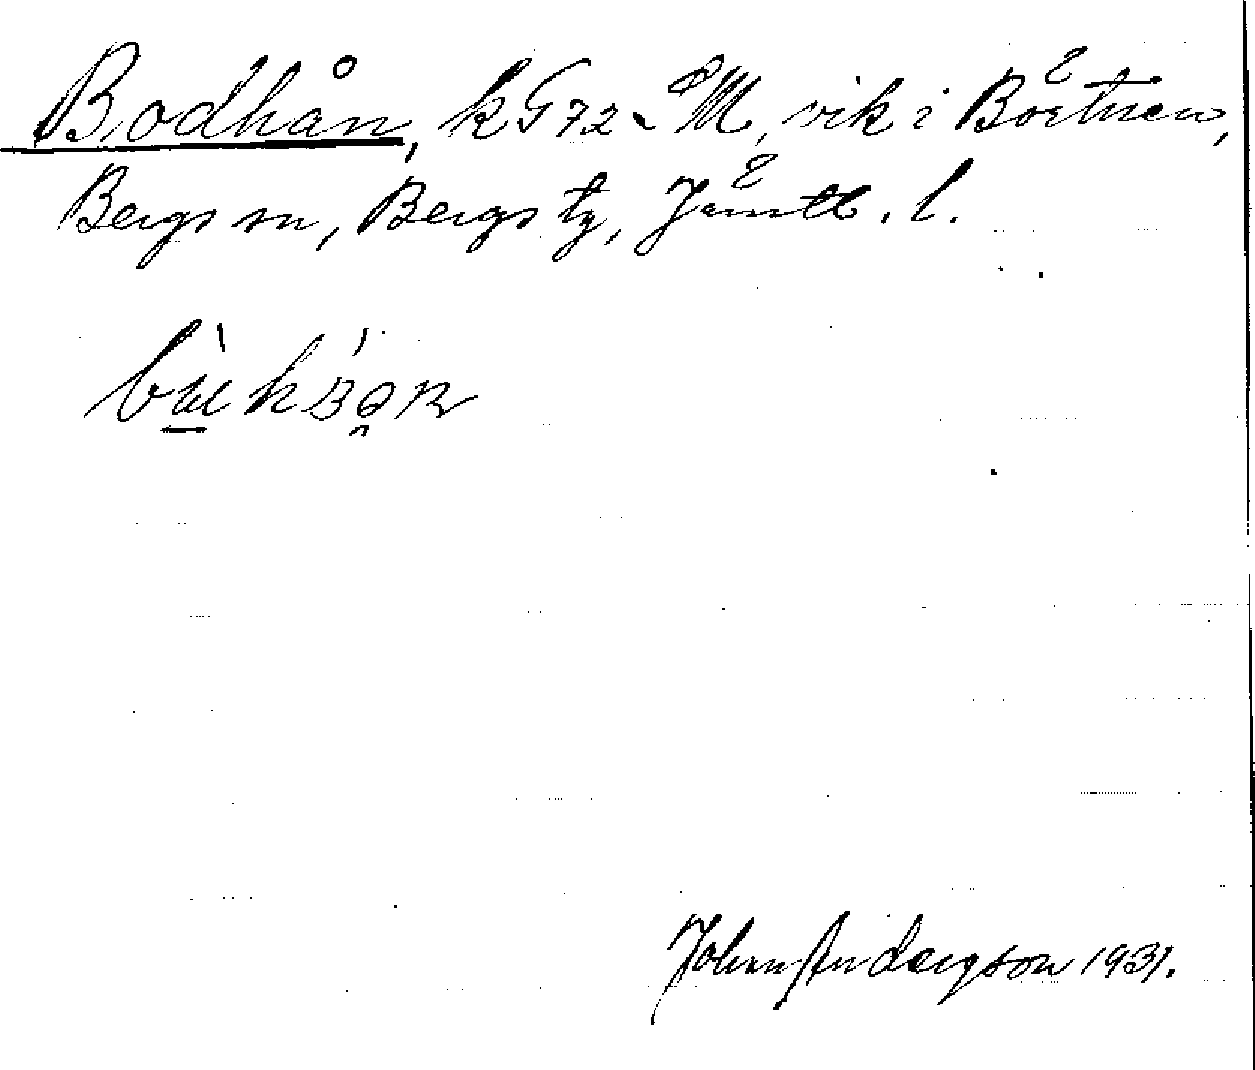 Bodhån, k G 72 M, vik i Börtnen,
Bergs sn, Bergs tg, Jämtl. l.
Johan Andersson 1931.